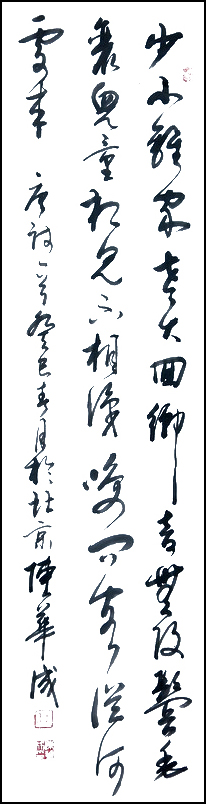 少小離家老大回鄉音無改鬢毛
衰兒童相見不相識咲問客從何
處來 唐詩一首癸巳春月於北京陸華成